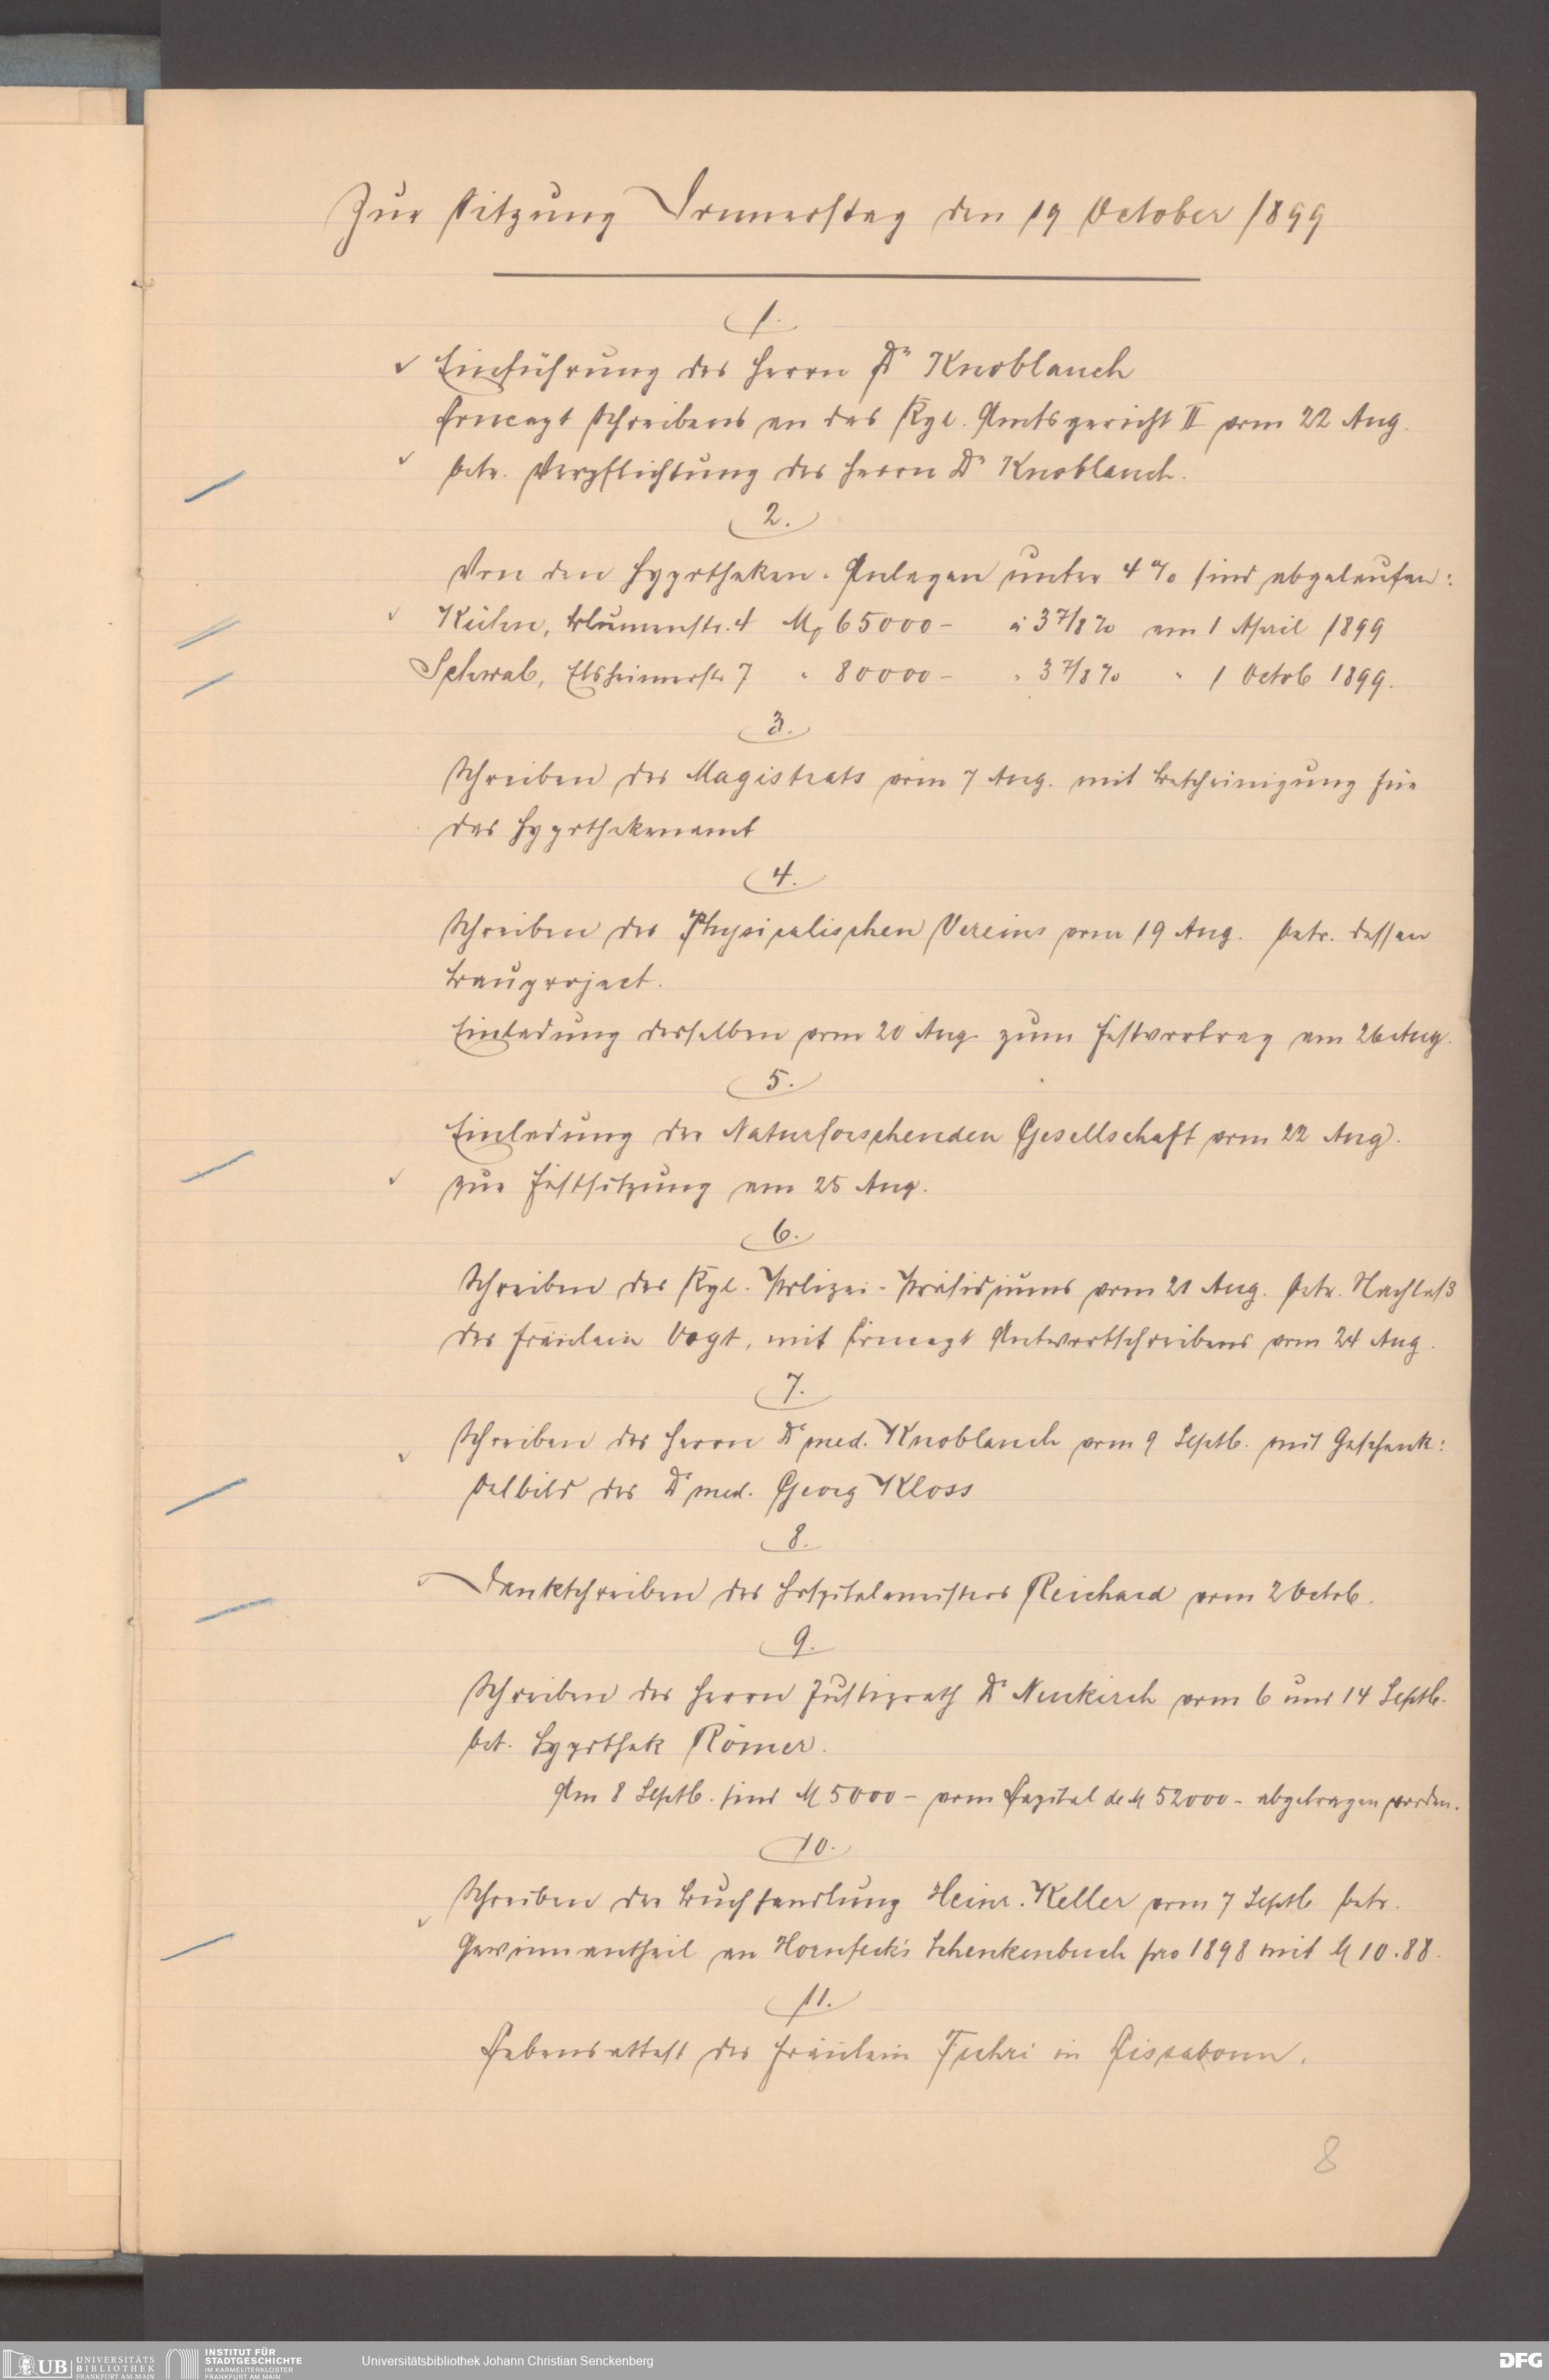 Zur Sitzung Donnerstag den 19 October 1899
1.
Einführung des Herrn Dr Knoblauch
Concept Schreibens an das Kgl. Amtsgericht II vom 22 Aug.
betr. Verpflichtung des Herrn Dr Knoblauch.
2.
Von den Hypotheken-Anlagen unter 4% sind abgelaufen:
Kühn, Blumenstr. 4 M 65000- à 3 7/8 % am 1 April 1899
Schwab, Elsheimerstr 7 " 80000- " 3 7/8 % " 1 Octob 1899.
3.
Schreiben des Magistrats vom 7 Aug. mit Bescheinigung für
das Hypothekenamt
4.
Schreiben des Physicalischen Vereins vom 19 Aug. betr. dessen
Bauproject.
Einladung desselben vom 20 Aug. zum Festvortrag am 26 Aug.
5.
Einladung der Naturforschenden Gesellschaft vom 22 Aug.
zur Festsitzung am 25 Aug.
6.
Schreiben des Kgl. Polizei-Präsidiums vom 21 Aug. betr. Nachlaß
des Fräulein Vogt, mit Concept Antwortschreibens vom 24 Aug.
7.
Schreiben des Herrn Dr med. Knoblauch vom 9 Septb. mit Geschenk:
Oelbild des Dr med. Georg Kloss
8.
Dankschreiben des Hospitalmeisters Reichard vom 2 Octob.
9.
Schreiben des Herrn Justizrath Dr Neukirch vom 6 und 14 Septb.
bet. Hypothek Römer.
Am 8 Septb. sind M 5000- vom Capital de M 52000- abgetragen worden.
10.
Schreiben der Buchhandlung Heinr. Keller vom 7 Septb betr.
Gewinnantheil an Hornfeck's Schenkenbuch pro 1898 mit M 10.88.
11.
Lebensattest des Fräulein Fuhri in Lissabonn.
8
UB UNIVERSITÄTS
BIBLIOTHEK
FRANKFURT AM MAIN
INSTITUT FÜR
STADTGESCHICHTE
IM KARMELITERKLOSTER
FRANKFURT AM MAIN
Universitätsbibliothek Johann Christian Senckenberg
DFG